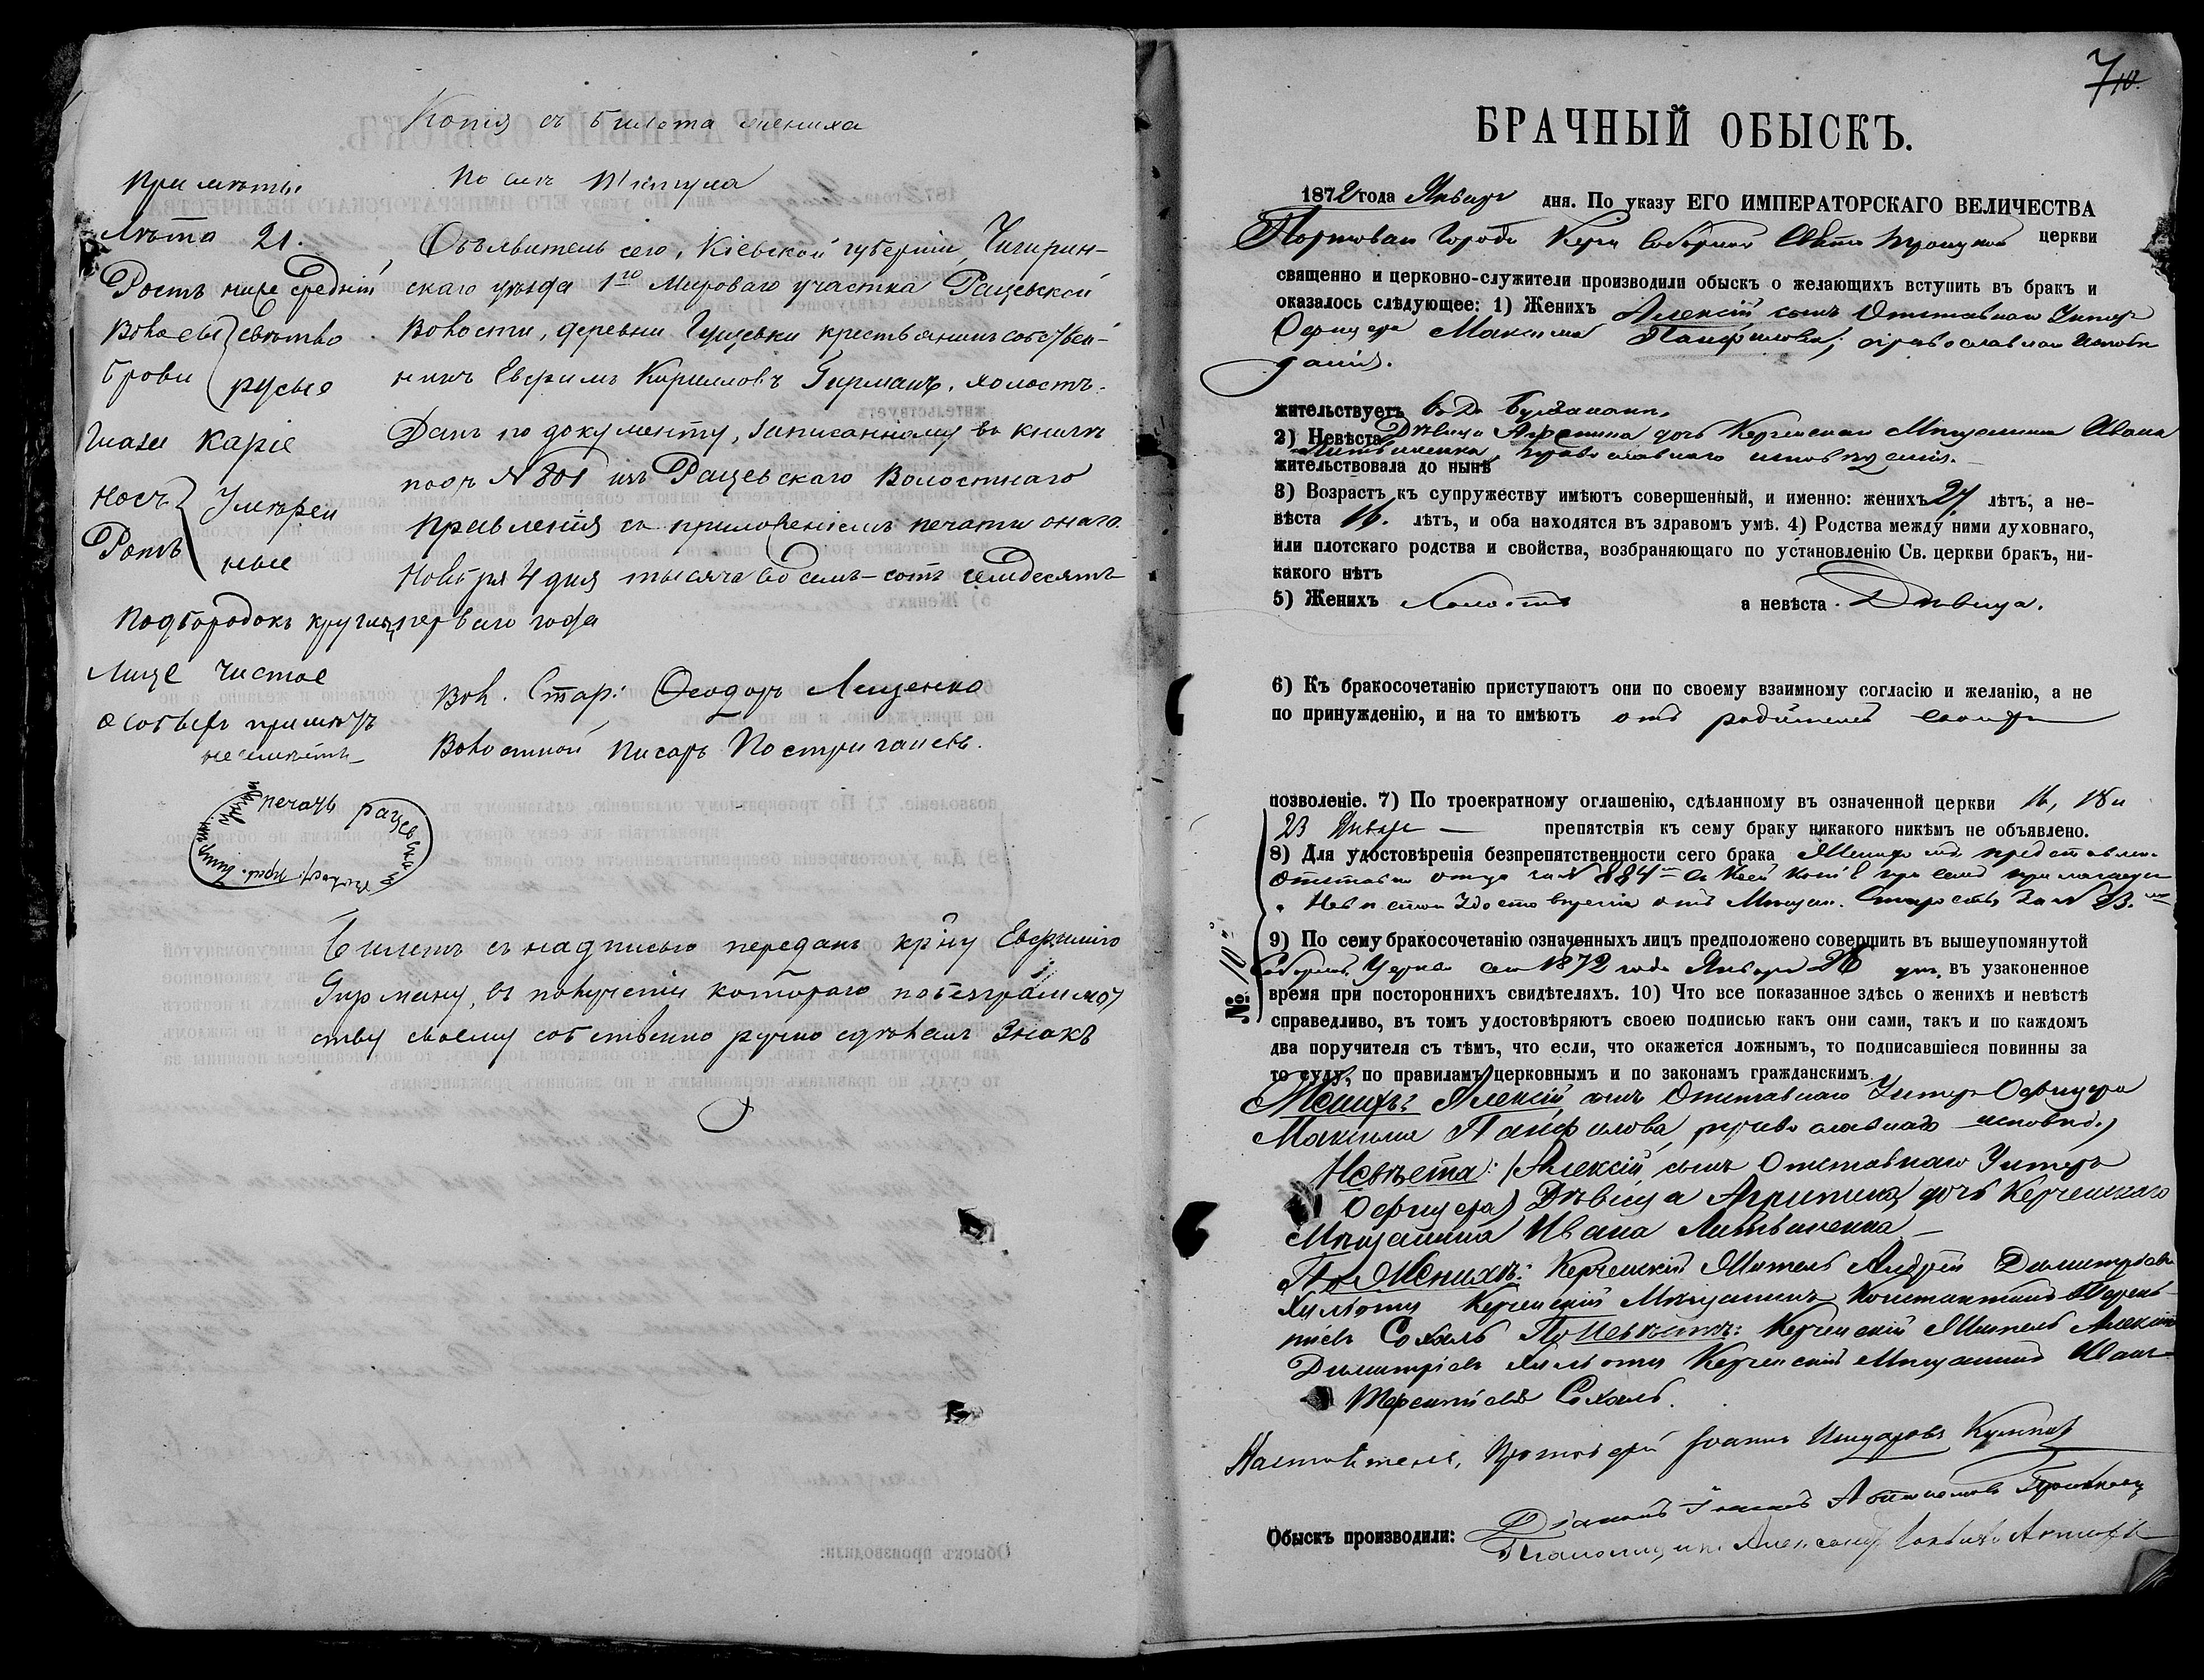 Копія съ билета жениха
Примѣты
Лѣта 21.
Ростъ ниже средній
Волосы свѣтло
брови русые
Глаза каріе
Носъ Умѣрен
Ротъ ные
Подбородокъ круглый
Лице чистое
особыхъ примѣтъ
не имѣетъ
По силѣ титула
Объявитель сего, Кіевской губерніи, Чигирин-
скаго уѣзда 1го Мироваго участка Рацевской
Волости, деревни крестьянинъ собствен-
никъ Евфимъ Кирилловъ Гирманъ, холостъ.
Данъ по документу, записанному въ книгѣ
подъ № 801 изъ Рацевскаго Волостнаго
Правленія съ приложеніемъ печати онаго.
Ноября 4 дня тысяча восемь-сотъ семдесятъ
перваго года
Вол. Стар: Ѳеодоръ Лященко
Волостной Писарь Постригань.
печать рацевскаго
Билетъ съ надписью переданъ кр-ну Евфимію
Гирману, въ полученіи котораго по безграмот
ству своему собственно ручно сдѣлалъ Знакъ
7
10.
БРАЧНЫЙ ОБЫСКЪ.
1872 года Января дня. По указу ЕГО ИМПЕРАТОРСКАГО ВЕЛИЧЕСТВА
Портоваго Города Керчи Соборной Свято Троицкой церкви
священно и церковно-служители производили обыск о желающихъ вступить въ бракъ и
оказалось слѣдующее: 1) Женихъ Алексій сынъ Отставнаго Унтер
Офицера Максима Панфилова, православнаго исповѣ
данія.
жительствуетъ
2) Невѣста Дѣвица Агрипина дочь Керченскаго Мѣщанина Ивана
Литвиненка, православнаго исповѣданія.
жительствовала до нынѣ
3) Возрастъ къ супружеству имѣютъ совершенный, и именно: женихъ 27 лѣтъ, а не-
вѣста 16. лѣтъ, и оба находятся въ здравомъ умѣ. 4) Родства между ними духовнаго,
или плотскаго родства и свойства, возбраняющаго по установленію Св. церкви бракъ, ни-
какого нѣтъ
5) Женихъ Холостъ а невѣста Дѣвица.
6) Къ бракосочетанію приступаютъ они по своему взаимному согласію и желанію, а не
по принужденію, и на то имѣютъ отъ родителей своихъ
позволеніе. 7) По троекратному оглашенію, сдѣланному въ означенной церкви 16, 18 и
23 Января — препятствія къ сему браку никакого никѣмъ не объявлено.
8) Для удостовѣренія безпрепятственности сего брака Женихомъ представлен.
отставка отца за № 884 съ коей копія при семъ прилагается
Невѣстой Удостовѣреніе отъ Мѣщан. Старосты За № 23.
№ 10.
9) По сему бракосочетанію означенныхъ лицъ предположено совершить въ вышеупомянутой
Соборной Церкви сего 1872 года Января 26 дня, въ узаконенное
время при постороннихъ свидѣтеляхъ. 10) Что все показанное здѣсь о женихѣ и невѣстѣ
справедливо, въ томъ удостовѣряютъ своею подписью какъ они сами, такъ и по каждомъ
два поручителя съ тѣмъ, что если, что окажется ложнымъ, то подписавшіеся повинны за
то суду, по правиламъ церковнымъ и по законамъ гражданскимъ
Женихъ: Алексій сынъ Отставнаго Унтер-Офицера
Максима Панфилова, православнаго исповѣд.
Невѣста: (Алексій сынъ Отставнаго Унтеръ
Офицера) Дѣвица Агрипина дочь Керченскаго
Мѣщанина Ивана Литвиненка —
По Женихѣ: Керченскій Житель Андрей Димитріевъ
Керченскій Мѣщанинъ Константинъ Терень-
тіевъ Сохань По Невѣстѣ: Керченскій Житель Алексій
Димитріевъ Керченскій Мѣщанинъ Иванъ
Терентіевъ Сохань.
Настоятель, Протоіерей Іоаннъ
Обыскъ производили: Діаконъ
Пономарь Александръ